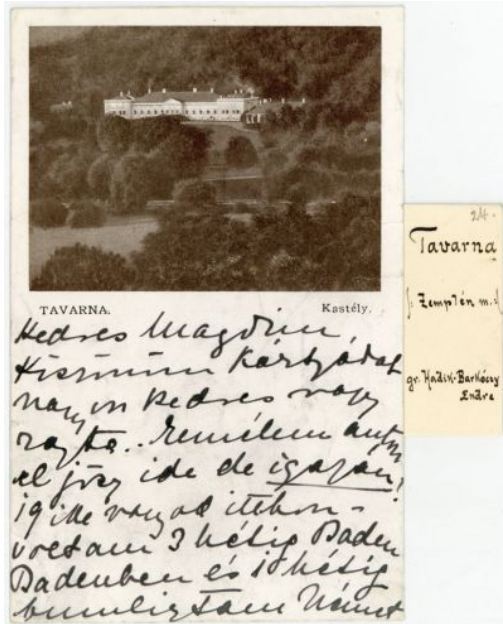 TAVARNA.
Kastély.
Kedves Magdim,
Kiszinüm Kártyádat
nagyon kedves vagy
rajta. Remélem
el jösz ide de igazán!
19 ide vagyok itthon
voltam 3 hétig Baden
Badenben és 1 hétig
bumliztam Német
24.
Tavarna
/: Zemplén m. :/
gr. Hadik-Barkóczy
Endre